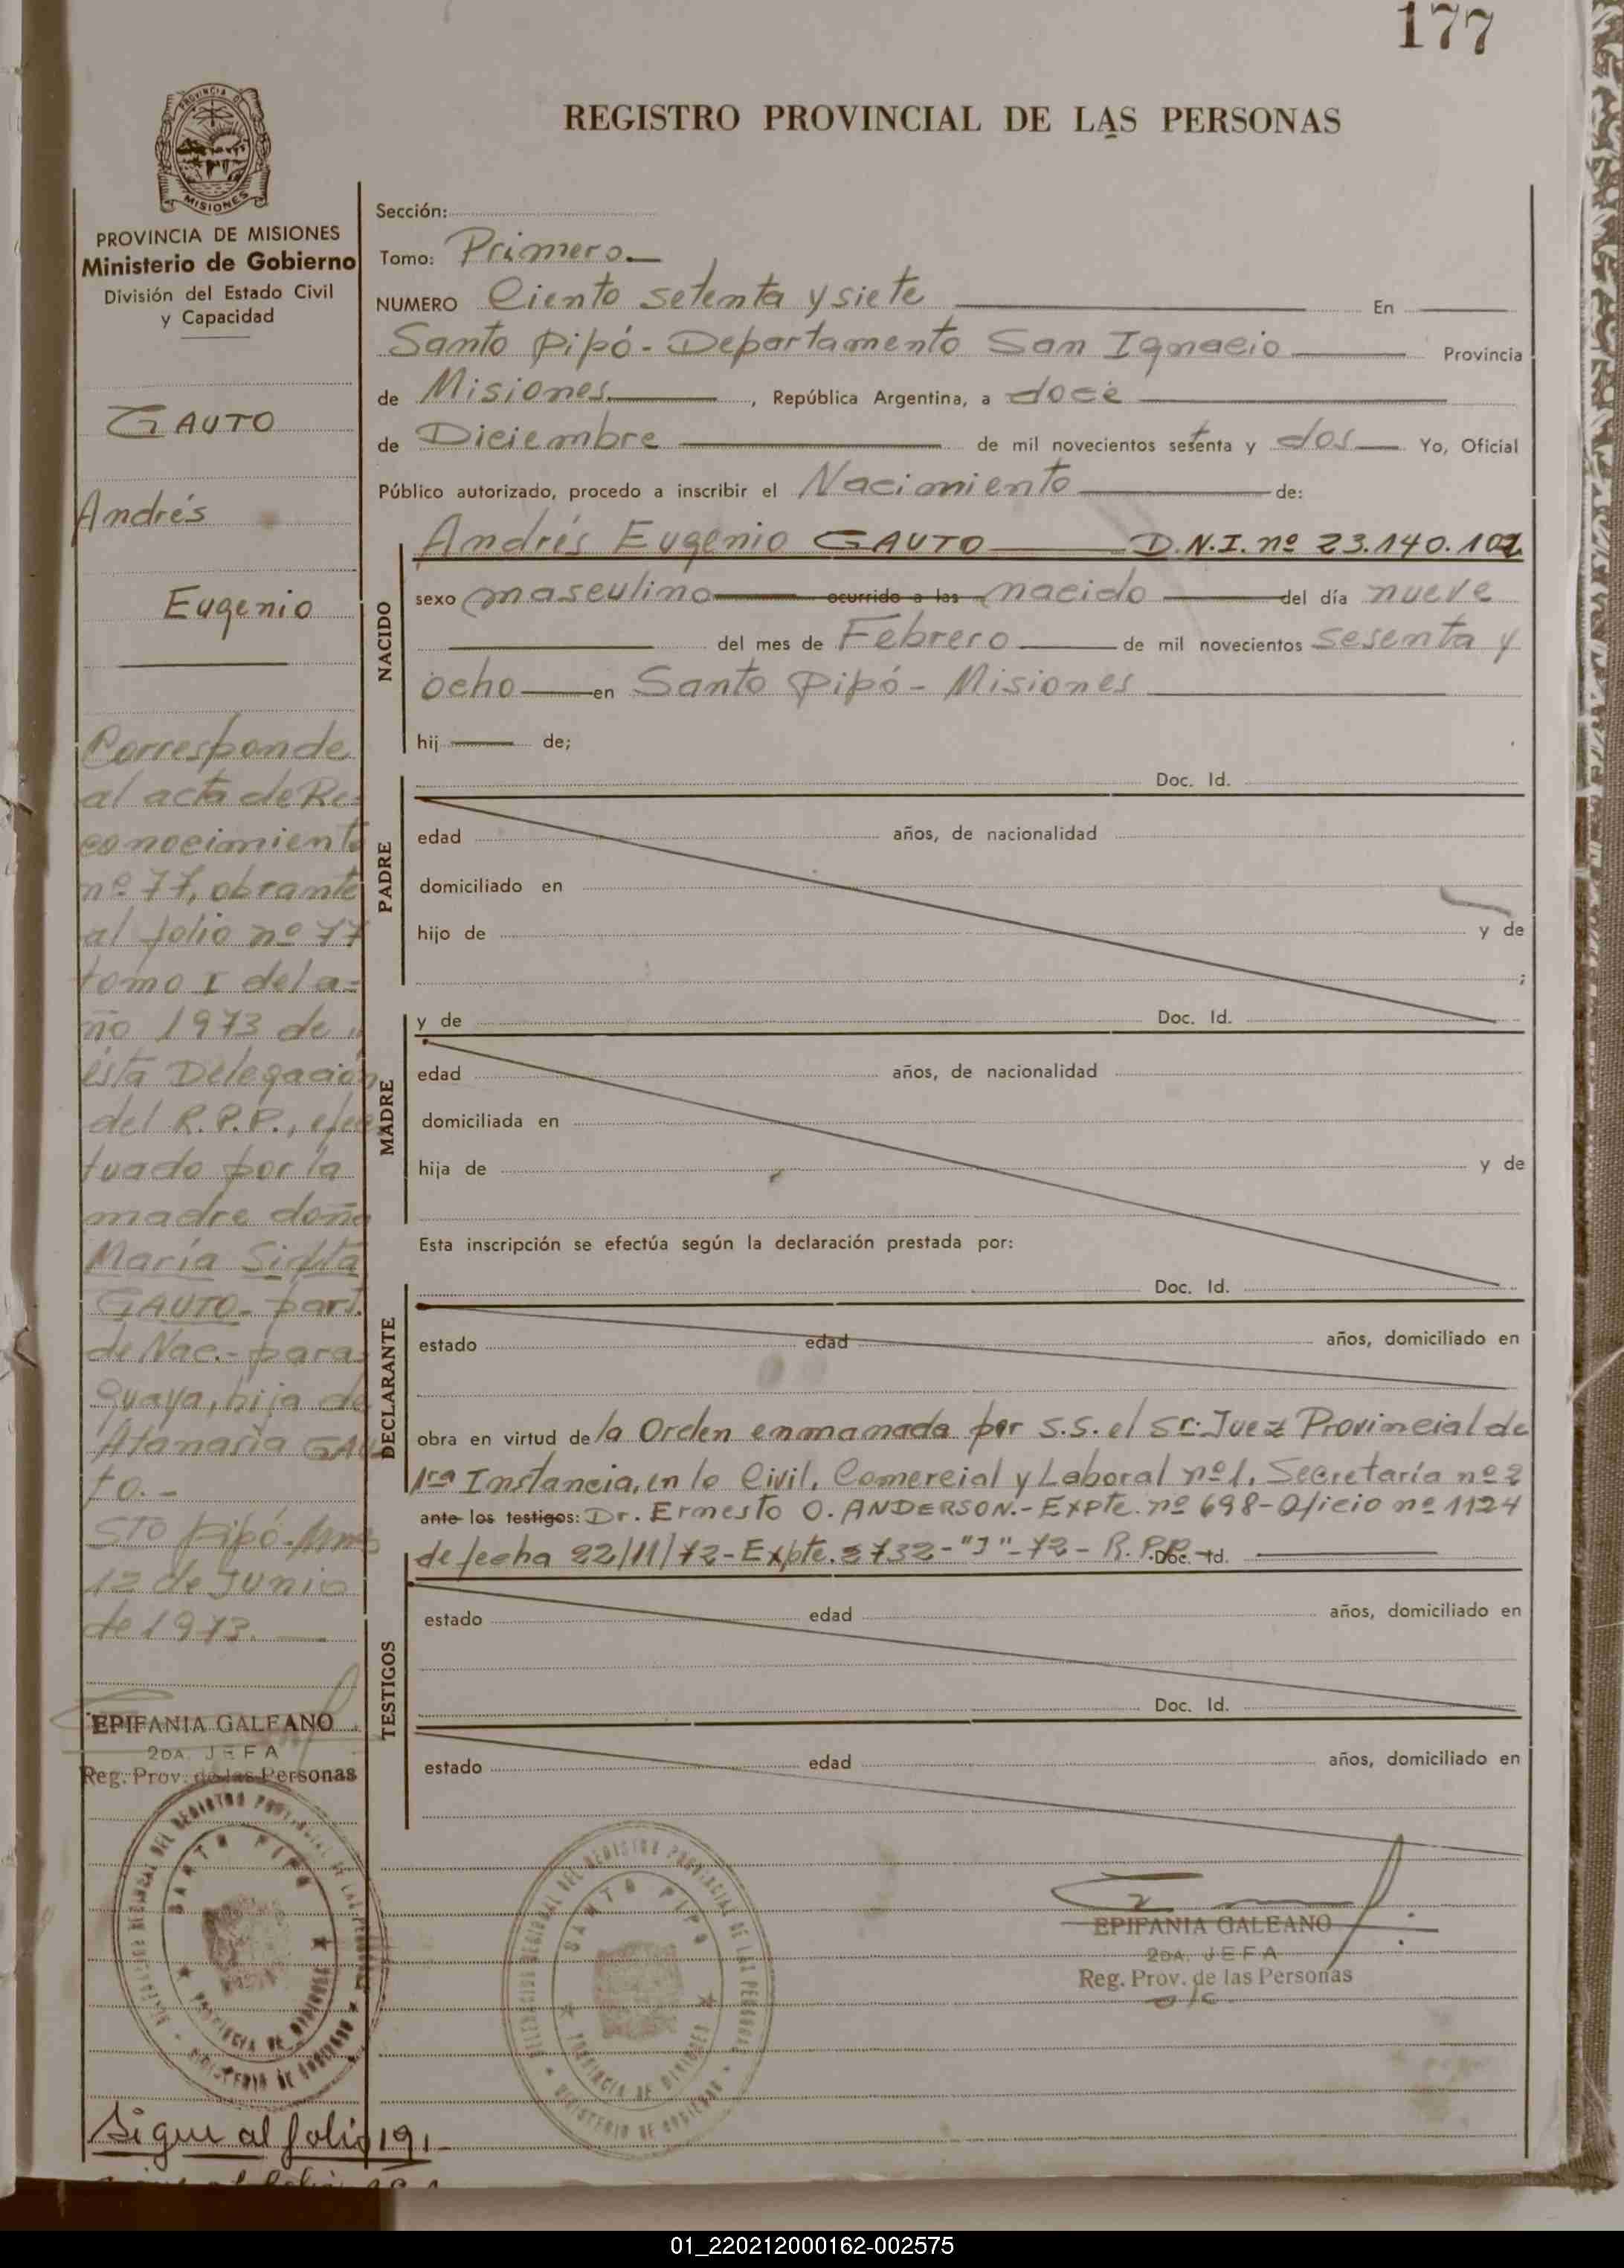 177
REGISTRO PROVINCIAL DE LAS PERSONAS
PROVINCIA DE
MISIONES
PROVINCIA DE MISIONES
Ministerio de Gobierno
División del Estado Civil
y Capacidad
GAUTO
Andrés
Eugenio
Corresponde
al acta de Re-
conocimiento
nº 77, obrante
al folio nº 77
tomo I del a-
ño 1973 de
ésta Delegación
del R.P.P., efec
tuado por la
madre doña
María Sidta
GAUTO- part.
de Nac.- para-
guaya, hija de
Atanasia GAU
TO.-
Sto Pipó-Mnes
12 de Junio
de 1973.
EPIFANIA GALEANO
2DA. JEFA
Reg. Prov. de las Personas
DELEGACION REGIONAL DEL REGISTRO PROVINCIAL DE LAS PERSONAS
SANTO PIPO
PROVINCIA DE MISIONES
MINISTERIO DE GOBIERNO
Sigue al folio 191-
Sección:
Tomo: Primero.
NUMERO Ciento setenta y siete En
Santo Pipó - Departamento San Ignacio Provincia
de Misiones, República Argentina, a doce
de Diciembre de mil novecientos setenta y dos Yo, Oficial
Público autorizado, procedo a inscribir el Nacimiento de:
NACIDO
Andrés Eugenio GAUTO D.N.I. nº 23.140.102
sexo masculino ocurrido a las nacido del día nueve
del mes de Febrero de mil novecientos sesenta y
ocho en Santo Pipó - Misiones
hij de;
PADRE
Doc. Id.
edad años, de nacionalidad
domiciliado en
hijo de y de
;
MADRE
y de Doc. Id.
edad años, de nacionalidad
domiciliada en
hija de y de
Esta inscripción se efectúa según la declaración prestada por:
DECLARANTE
Doc. Id.
estado edad años, domiciliado en
obra en virtud de la Orden enmanada por S.S. el Sr. Juez Provincial de
1ra Instancia, en lo Civil, Comercial y Laboral nº 1, Secretaría nº 2
ante los testigos: Dr. Ernesto O. ANDERSON.- Expte. nº 698-Oficio nº 1124
de fecha 22/11/72-Expte. 3732-"J"-72- R.P.P. Doc. Id.
TESTIGOS
estado edad años, domiciliado en
Doc. Id.
estado edad años, domiciliado en
DELEGACION REGIONAL DEL REGISTRO PROVINCIAL DE LAS PERSONAS
SANTO PIPO
PROVINCIA DE MISIONES
MINISTERIO DE GOBIERNO
EPIFANIA GALEANO
2DA. JEFA
Reg. Prov. de las Personas
a/c
01_220212000162-002575